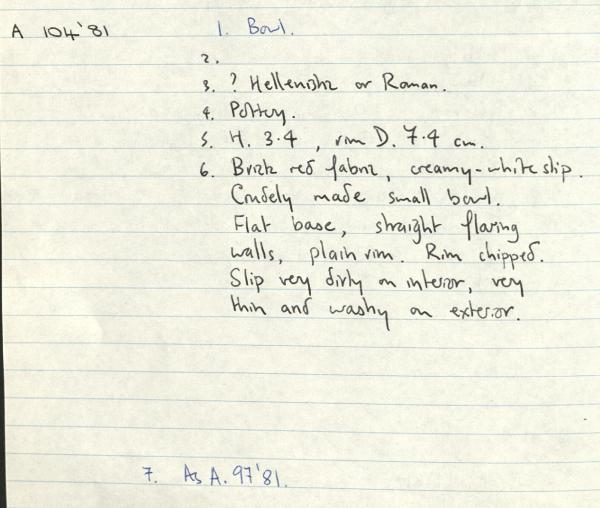 A 104'81
1. Bowl.
2.
3. ? Hellenistic or Roman.
4. Pottery.
5. H. 3.4 , rim D. 7.4 cm.
6. Brick red fabric, creamy-white slip.
Crudely made small bowl.
Flat base, straight flaring
walls, plain rim. Rim chipped.
Slip very dirty on interior, very
thin and washy on exterior.
7. As A. 97'81.